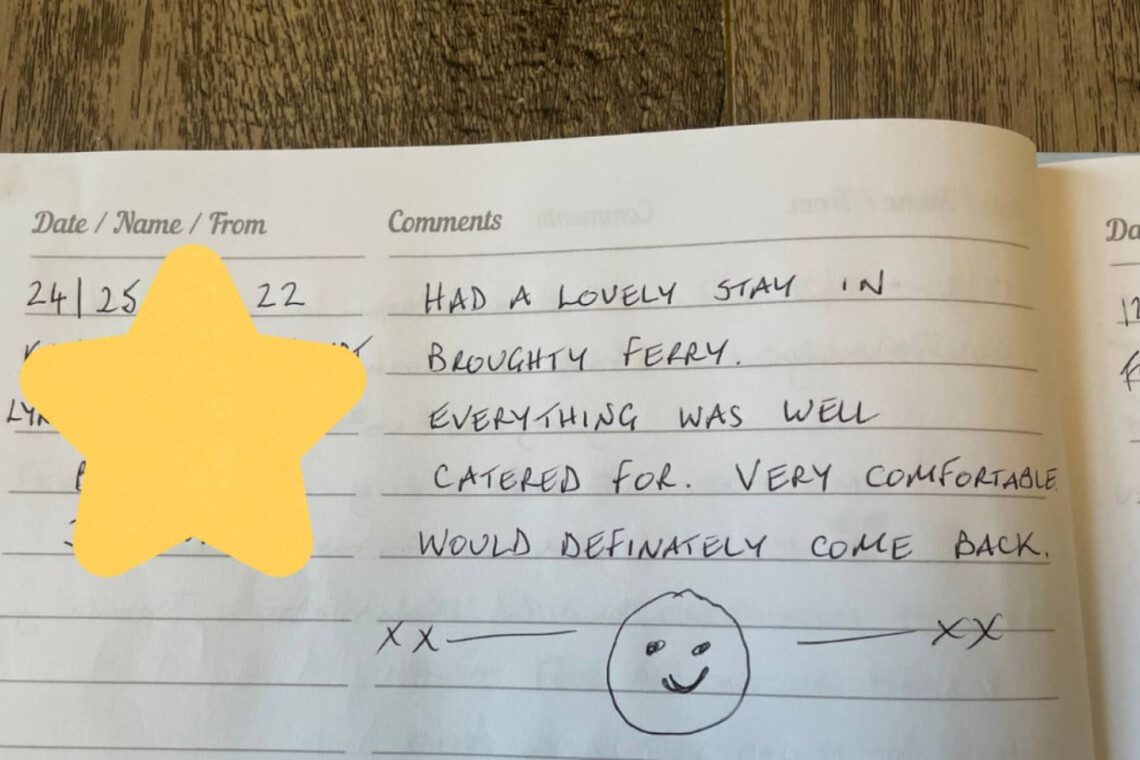 Date / Name / From Comments
24|25 22 HAD A LOVELY STAY IN
BROUGHTY FERRY.
EVERYTHING WAS WELL
CATERED FOR. VERY COMFORTABLE.
WOULD DEFINATELY COME BACK.
XX XX